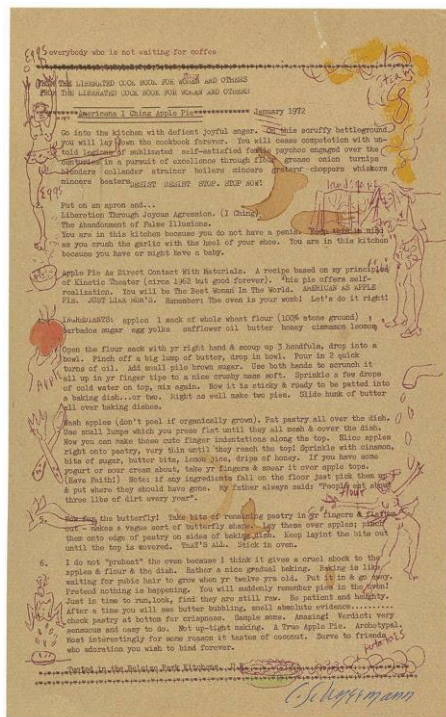 everybody who is not waiting for coffee
FROM THE LIBERATED COOK BOOK FOR WOMEN AND OTHERS
FROM THE LIBERATED COOK BOOK FOR WOMEN AND OTHERS
Americana I Ching Apple Pie January 1972
Go into the kitchen with defiant joyful anger. On this scruffy battleground
you will lay down the cookbook forever. You will cease competition with un-
told legions of sublimated self-satisfied female psyches engaged over the
centuries in a pursuit of excellence through flour grease onion turnips
blenders collander strainer boilers mincers graters choppers whiskers
mincers beaters. DESIST DESIST STOP. STOP NOW!
eggs
Put on an apron and...
Liberation Through Joyous Agression. (I Ching)
The Abandonment of False Illusions.
You are in this kitchen because you do not have a penis. Keep this in mind
as you crush the garlic with the heel of your shoe. You are in this kitchen
because you have or might have a baby.
Apple Pie As Direct Contact With Materials. A recipe based on my principles
of Kinetic Theater (circa 1962 but good forever). This pie offers self-
realization. You will be The Best Woman In The World. AMERICAN AS APPLE
PIE. JUST LIKE MOM'S. Remember: The oven is your womb! Let's do it right!
INGREDIENTS: apples 1 sack of whole wheat flour (100% stone ground)
barbados sugar egg yolks safflower oil butter honey cinnamon lemons
Open the flour sack with yr right hand & scoop up 3 handfuls, drop into a
bowl. Pinch off a big lump of butter, drop in bowl. Pour in 2 quick
turns of oil. Add small pile brown sugar. Use both hands to scrunch it
all up in yr finger tips to a nice crushy mass soft. Sprinkle a few drops
of cold water on top, mix again. Now it is sticky & ready to be patted into
a baking dish...or two. Might as well make two pies. Slide hunk of butter
all over baking dishes.
Wash apples (don't peel if organically grown). Pat pastry all over the dish.
Use small lumps which you press flat until they all mesh & cover the dish.
Now you can make those cute finger indentations along the top. Slice apples
right onto pastry, very thin until they reach the top! Sprinkle with cinamon,
bits of sugar, butter bits, lemon juice, drips of honey. If you have some
yogurt or sour cream about, take yr fingers & smear it over apple tops.
(Have Faith!) Note: if any ingredients fall on the floor just pick them up
& put where they should have gone. My father always said: "People eat about
three lbs of dirt every year".
flour
5. Now for the butterfly! Take bits of remaining pastry in yr fingers & flatten
out - makes a vague sort of butterfly shape. Lay these over apples; pinch
them onto edge of pastry on sides of baking dish. Keep layint the bits out
until the top is covered. THAT'S ALL. Stick in oven.
6. I do not "preheat" the oven because I think it gives a cruel shock to the
apples & flour & the dish. Rather a nice gradual baking. Baking is like
waiting for pubic hair to grow when yr twelve yrs old. Put it in & go away.
Pretend nothing is happening. You will suddenly remember pies in the oven!
Just in time to run, look, find they are still raw. Be patient and haughty.
After a time you will see butter bubbling, smell absolute evidence..........
check pastry at bottom for crispness. Sample some. Amazing! Verdict: very
sensuous and easy to do. Not up-tight making. A True Apple Pie. Archetypal.
Most interestingly for some reason it tastes of coconut. Serve to friends
who adoration you wish to bind forever.
potatoes
Tested in the Belsize Park Kitchens,
C. Schneemann